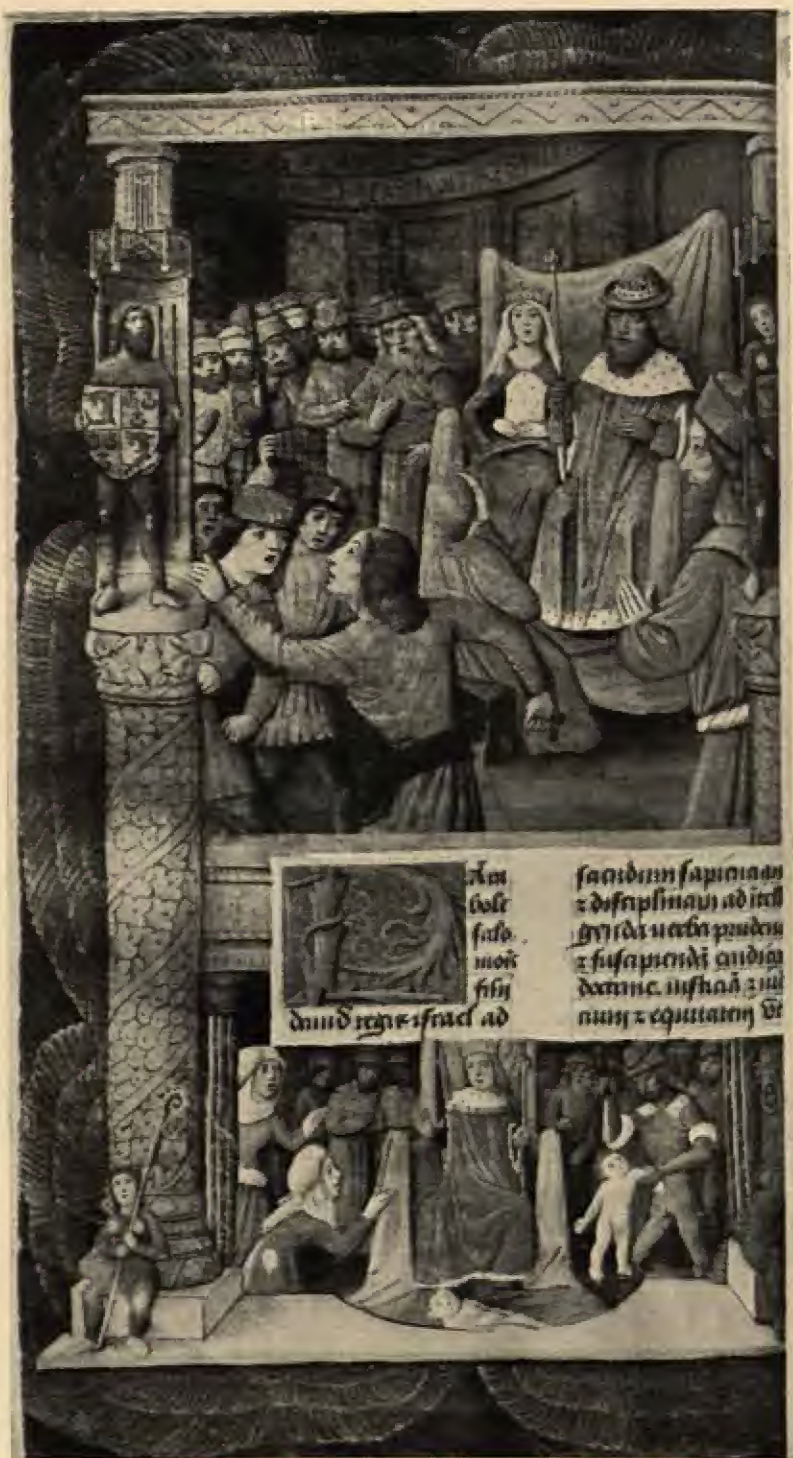 Para
bole
salo
mois
filij
dauid regis israel ad
sciendum sapienciam
⁊ disciplinam ad itell
genda uerba pruden
⁊ suscipiendā erudi
doctrine. iusticiā ⁊ iud
cium ⁊ equitatem Vt